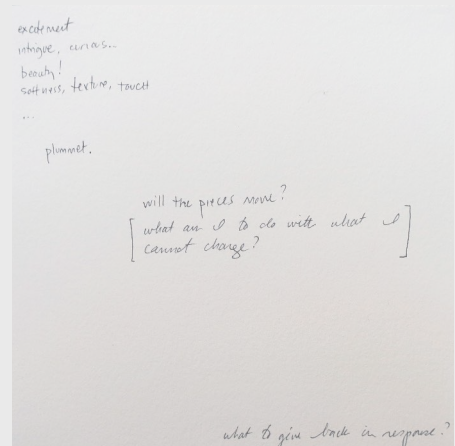 excitement
intrigue, curious...
beauty!
softness, texture, touch
...
plummet.
will the pieces move?
[what am I to do with what I
cannot change?]
what to give back in response?